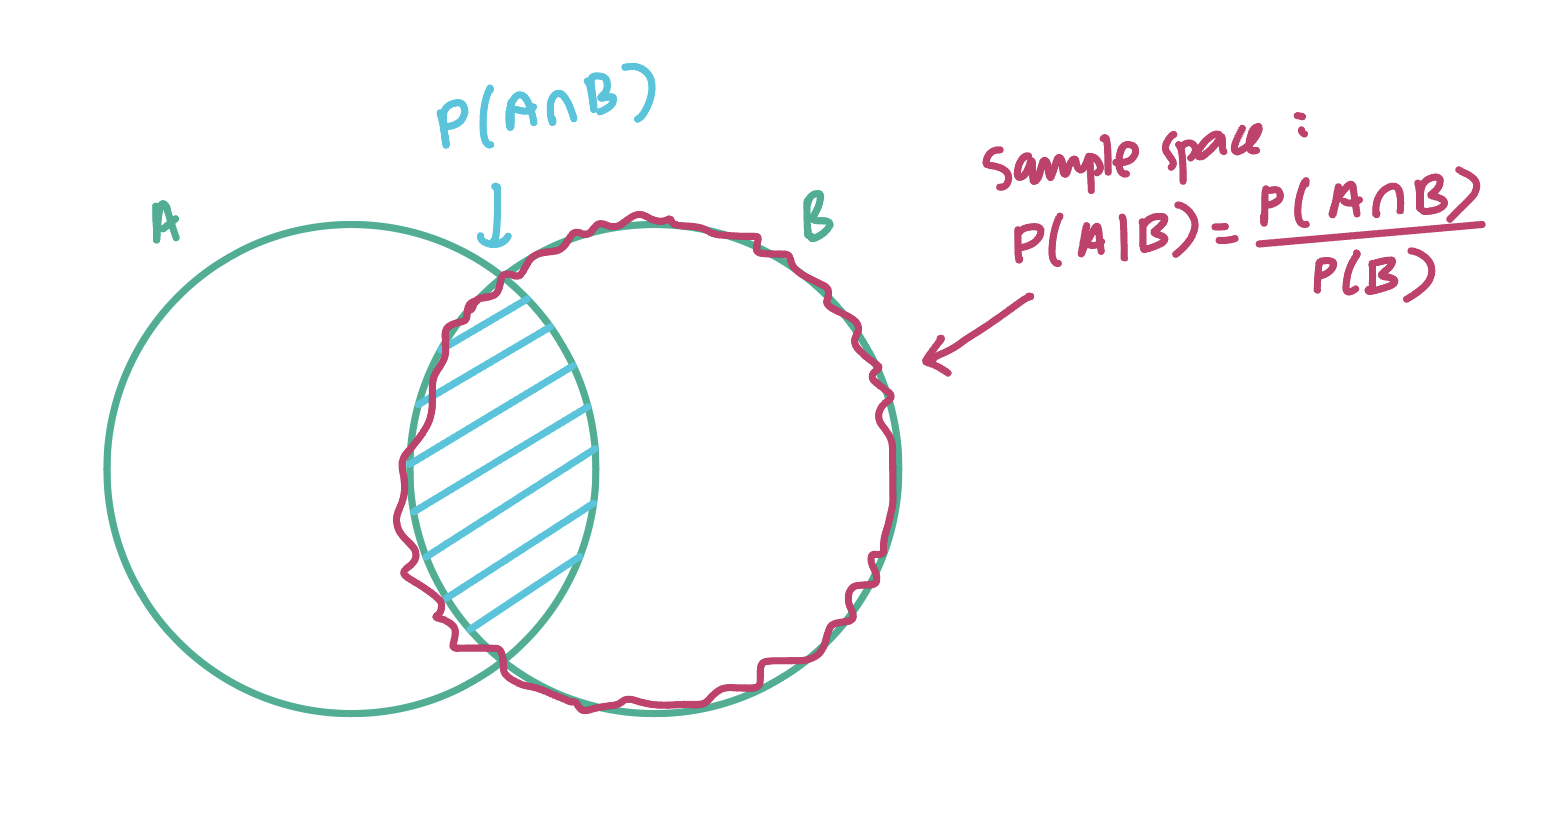 P(A∩B)
A
B
Sample space:
P(A|B) = P(A∩B)
P(B)